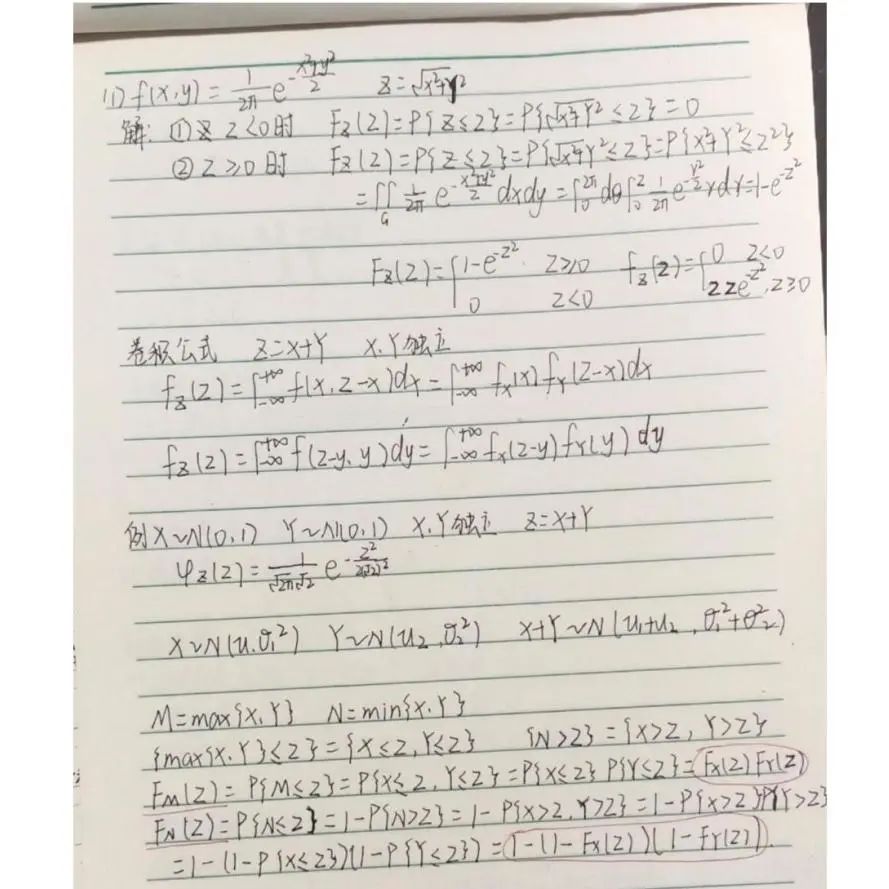 (1) f(x,y)=\frac{1}{2π}e^{-\frac{x²+y²}{2}} Z=√(X²+Y²)
解: ① z<0时 F_Z(z)=P{Z≤z}=P{√(X²+Y²)≤z}=0
② z≥0时 F_Z(z)=P{Z≤z}=P{√(X²+Y²)≤z}=P{X²+Y²≤z²}
=∬_G \frac{1}{2π}e^{-\frac{x²+y²}{2}}dxdy=∫_0^{2π}dθ∫_0^z \frac{1}{2π}e^{-\frac{r²}{2}}rdr=1-e^{-z²}
F_Z(z)={1-e^{-z²}. z≥0 f_Z(z)={0 z<0
0 z<0 2ze^{-z²}, z≥0
卷积公式 Z=X+Y X.Y独立
f_Z(z)=∫_{-∞}^{+∞}f(x,z-x)dx=∫_{-∞}^{+∞}f_X(x)f_Y(z-x)dx
f_Z(z)=∫_{-∞}^{+∞}f(z-y,y)dy=∫_{-∞}^{+∞}f_X(z-y)f_Y(y)dy
例 X~N(0,1) Y~N(0,1) X.Y独立 Z=X+Y
φ_Z(z)=\frac{1}{√2π√2}e^{-\frac{z²}{2(√2)²}}
X~N(u,σ₁²) Y~N(u₂,σ₂²) X+Y~N(u₁+u₂,σ₁²+σ₂²)
M=max{X,Y} N=min{X.Y}
{max{X.Y}≤z}={X≤z,Y≤z} {N>z}={X>z,Y>z}
F_M(z)=P{M≤z}=P{X≤z,Y≤z}=P{X≤z}P{Y≤z}=F_X(z)F_Y(z)
F_N(z)=P{N≤z}=1-P{N>z}=1-P{X>z,Y>z}=1-P{X>z}P{Y>z}
=1-(1-P{X≤z})(1-P{Y≤z})=1-(1-F_X(z))(1-F_Y(z))